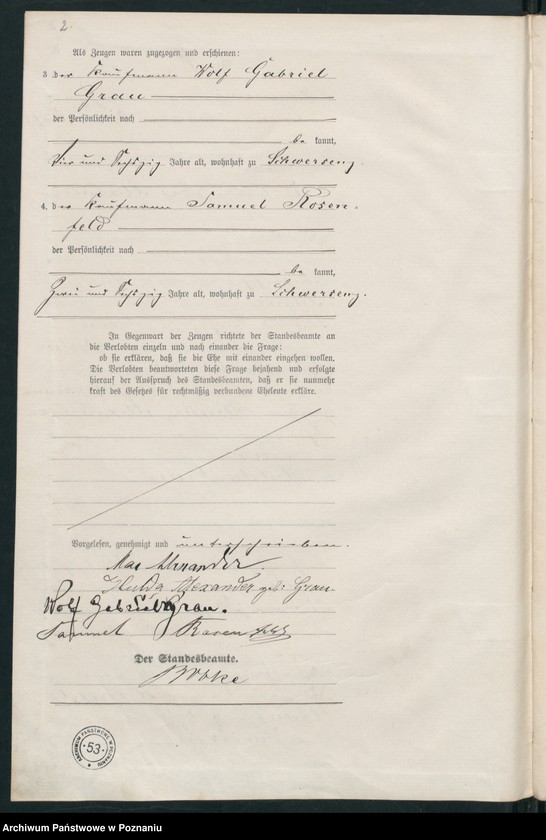 2.
Als Zeugen waren zugezogen und erschienen:
3 der Kaufmann Wolf Gabriel
Grau
der Persönlichkeit nach
be kannt,
Vier und Sechszig Jahre alt, wohnhaft zu Schwersenz.
4. der Kaufmann Samuel Rosen-
feld
der Persönlichkeit nach
be kannt,
Zwei und Sechszig Jahre alt, wohnhaft zu Schwersenz.
In Gegenwart der Zeugen richtete der Standesbeamte an
die Verlobten einzeln und nach einander die Frage:
ob sie erklären, daß sie die Ehe mit einander eingehen wollen.
Die Verlobten beantworteten diese Frage bejahend und erfolgte
hierauf der Ausspruch des Standesbeamten, daß er sie nunmehr
kraft des Gesetzes für rechtmäßig verbundene Eheleute erkläre.
Vorgelesen, genehmigt und unterschrieben.
Max Alexander
Hulda Alexander geb: Grau.
Wolf Gabriel Grau.
Samuel Rosenfeld
Der Standesbeamte.
ARCHIWUM PAŃSTWOWE W POZNANIU
53
Archiwum Państwowe w Poznaniu